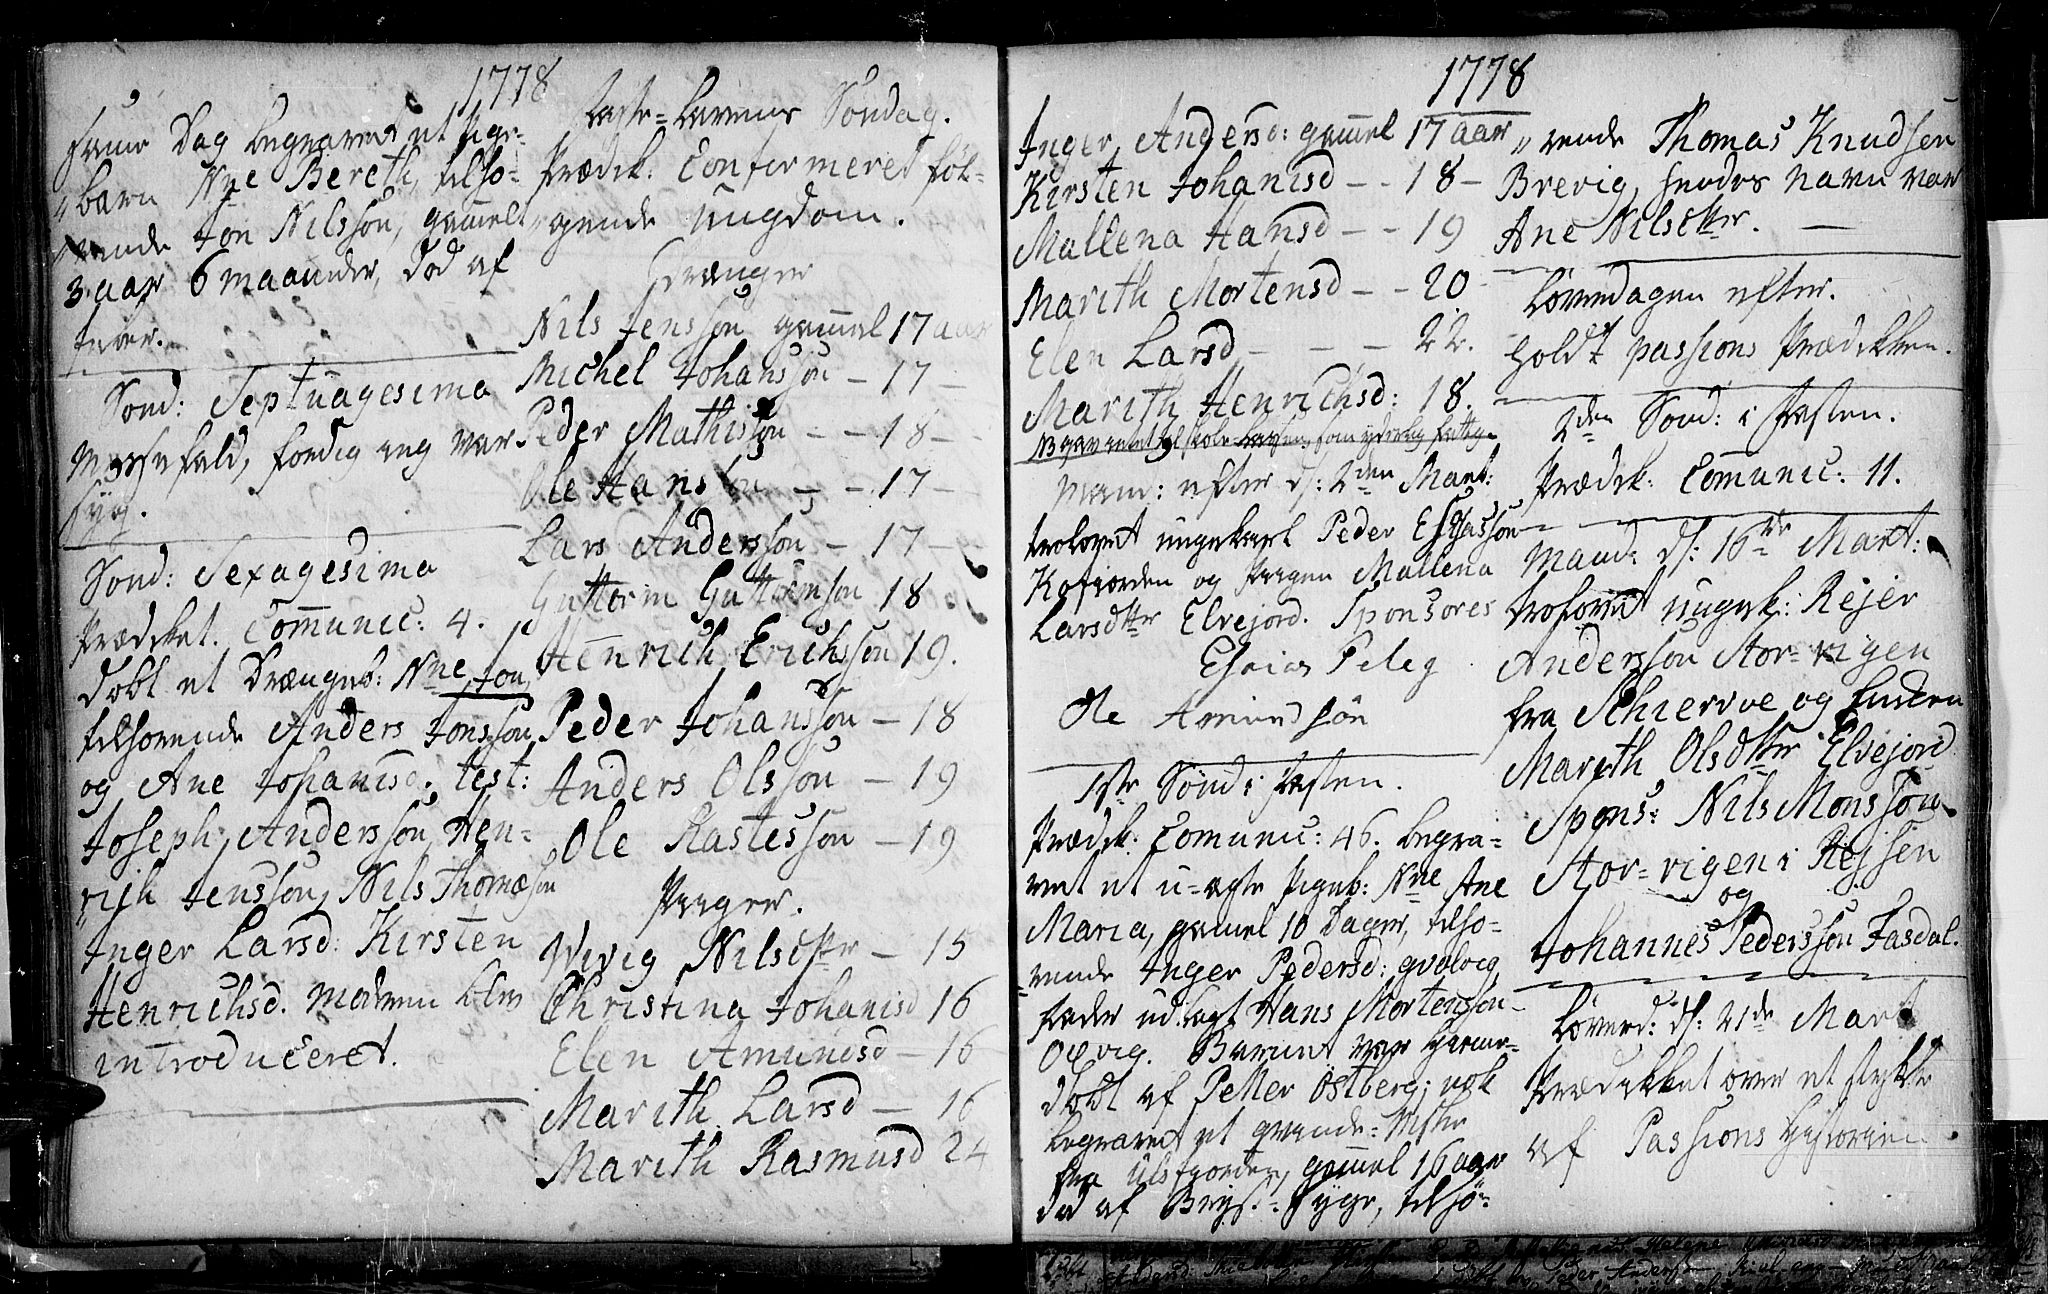 1778
same Dag begravet et Pige-
"barn Nne Bereth, tilhø-
"rende Jon Nilsson, gammelt
3 aar 6 maaneder, død af
Sønd: Septuagesima
Messefald, fordi jeg var
syg.
Sønd: Sexagesima
Prædiket. Communic: 4.
døbt et Drængeb: Nne Jon,
tilhørende Anders Jonsson
og Ane Johanisd: test:
Joseph Andersson, Hen-
"rich Jensson, Nils Thomæson
Inger Larsd: Kirsten
Henrichsd. Moderen blev
introduceret.
Faste-Lavens Søndag.
Prædik: Confirmeret föl-
"gende Ungdom.
Drænger
Nils Jensson gammel 17 aar
Michel Johansson — 17 —
Peder Mathisson — — 18 —
Ole Hanssøn — — 17 —
Lars Andersson — 17 —
Guttorm Guttormson 18
Henrich Erichsson 19.
Peder Johansson — 18
Anders Olsson — 19
Ole Rastesson — 19
Piiger.
Wivig Nilsdttr — 15
Christina Johanisd 16
Elen Amundsd — 16
Marith Larsd — 16
Marith Rasmusd 24
1778
Inger Andersd: gammel 17 aar
Kirsten Johanisd - - 18 -
Mallena Hansd - - 19
Marith Mortensd - - 20
Elen Larsd - - - 22.
Marith Henrichsd: 18.
Mand: efter d: 2den Mart:
trolovet ungekarl Peder Esaiasson
Kafiorden og Piigen Mallena
Larsdttr Elvejord. Sponsores
Esaias Peleg
Ole Amundsön
1ste Sönd: i Fasten.
Prædik: Comunic: 46. begra-
vet et u-ægte Pigeb: Nne Ane
Maria, gamel 10 Dager, tilhø-
"rende Inger Pedersd:
fader udlagt Hans Mortensson
Barnet var hjemme-
døbt af Petter Östberg; nok
begravet et qvinde-
fra Ulsfjorden, gammel 16 aar
død af Bryst-syge, tilhö-
"rende Thomas Knudsen
Brevig, hendes navn var
Ane Nilsdttr. —
Løverdagen efter.
holdt passions Prædikken.
2den Sönd: i Fasten.
Prædik: Communic: 11.
Mand: d: 16de Mart:
trolovet ungek: Rejer
Andersson Stor-vigen
fra Schiervøe og Enken
Marith Olsdttr Elvejord
Spons: Nils Monsson
Stor-vigen i Rejsen
og
Johannes Pedersson Fasdal.
Løverd: d: 21de Mart
Prædikket over et stykke
af Passions Historien.